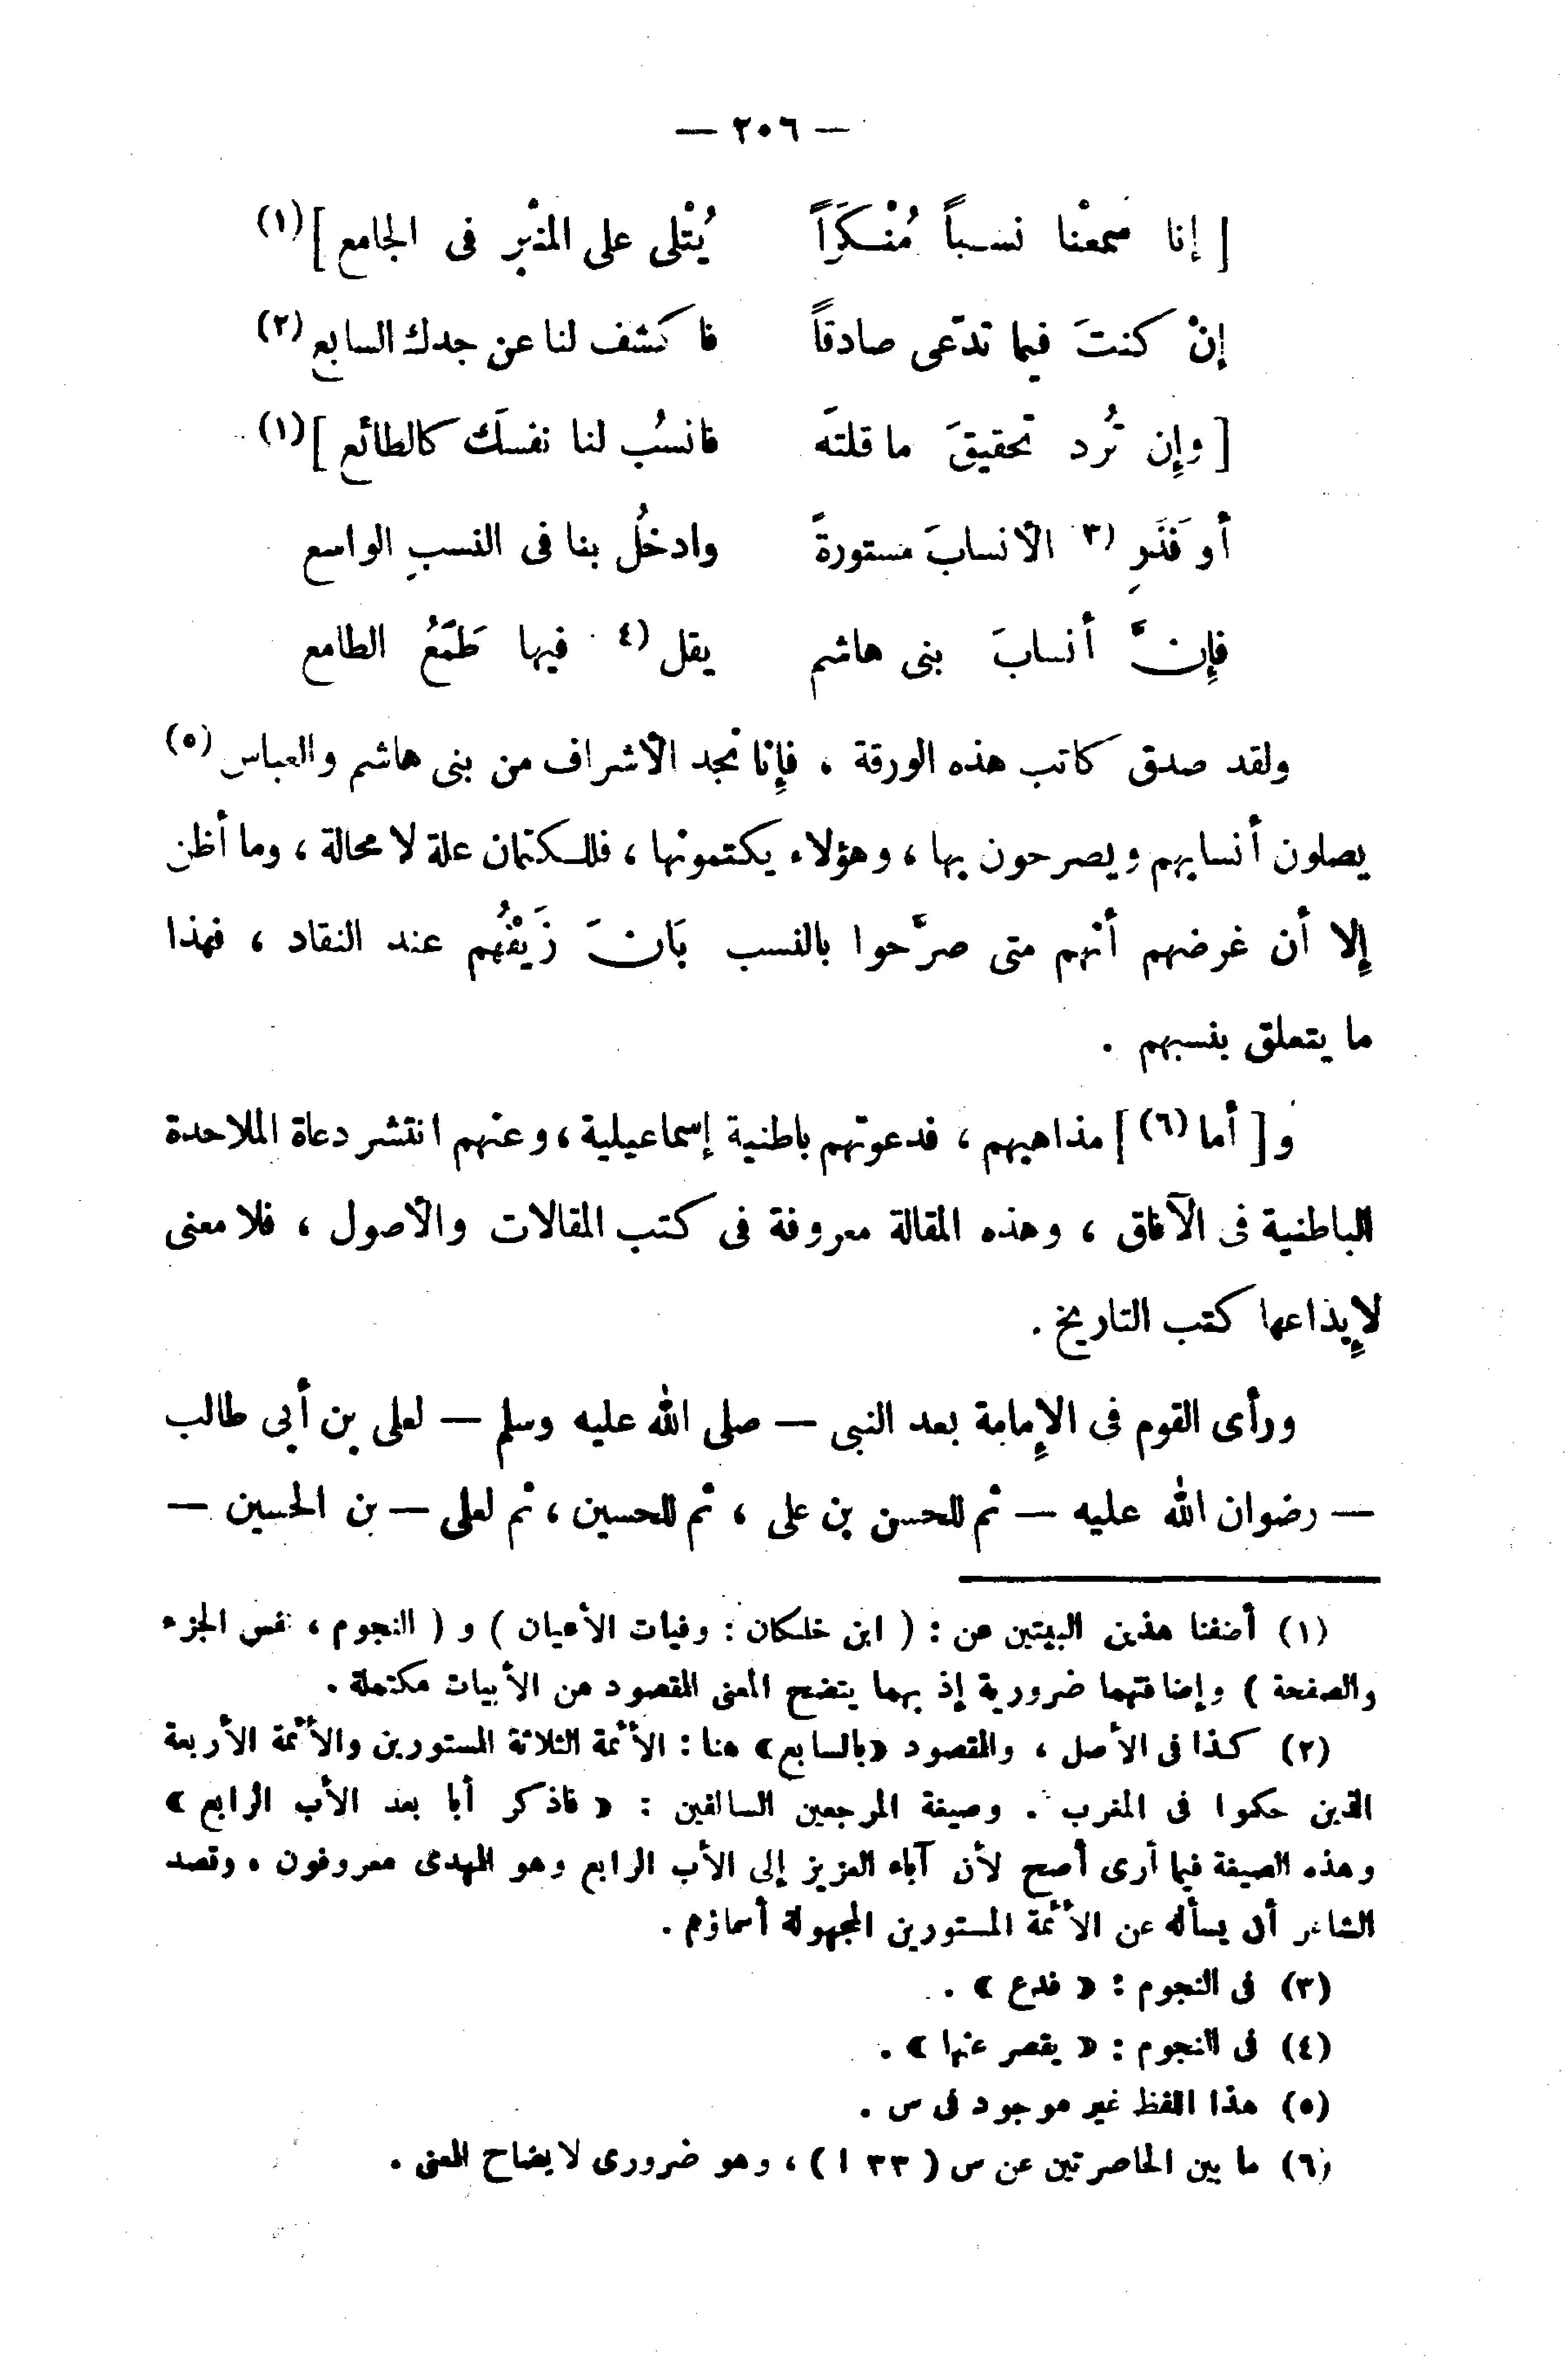 — ٢٠٦ —
[ إنا سمعْنا نسباً مُنْكَرَاً يُتْلى على المنْبر فى الجامع ](١)
إنْ كنتَ فيما تدّعى صادقاً فاكشف لنا عن جدك السابع (٢)
[ وإن تُرد تحقيقَ ما قلتَه فانسُب لنا نفسَك كالطائع ](١)
أو فَذَرِ (٣ الأنسابَ مستورةً وادخُل بنا فى النسبِ الواسع
فإنَّ أنسابَ بنى هاشم يقل (٤ فيها طَمَعُ الطامع
ولقد صدق كاتب هذه الورقة ، فإنا نجد الأشراف من بنى هاشم والعباس (٥)
يصلون أنسابهم ويصرحون بها ، وهؤلاء يكتمونها ، فللكتمان علة لا محالة ، وما أظن
إلا أن غرضهم أنهم متى صرَّحوا بالنسب بَانَ زَيْفُهم عند النقاد ، فهذا
ما يتعلق بنسبهم .
و [ أما (٦) ] مذاهبهم ، فدعوتهم باطنية إسماعيلية ، وعنهم انتشر دعاة الملاحدة
الباطنية فى الآفاق ، وهذه المقالة معروفة فى كتب المقالات والأصول ، فلا معنى
لإيداعها كتب التاريخ .
ورأى القوم فى الإمامة بعد النبى — صلى الله عليه وسلم — لعلى بن أبى طالب
— رضوان الله عليه — ثم للحسن بن على ، ثم للحسين ، ثم لعلى — بن الحسين —
(١) أضفنا هذين البيتين عن : ( ابن خلكان : وفيات الأعيان ) و ( النجوم ، نفس الجزء
والصفحة ) وإضافتهما ضرورية إذ بهما يتضح المعنى المقصود من الأبيات مكتملة .
(٢) كذا فى الأصل ، والمقصود «بالسابع» هنا : الأئمة الثلاثة المستورين والأئمة الأربعة
الذين حكموا فى المغرب . وصيغة المرجعين السالفين : « فاذكر أبا بعد الأب الرابع »
وهذه الصيغة فيما أرى أصح لأن آباء العزيز إلى الأب الرابع وهو المهدى معروفون ، وقصد
الشاعر أن يسأله عن الأئمة المستورين المجهولة أسماؤهم .
(٣) فى النجوم : « فدع » .
(٤) فى النجوم : « يقصر عنها » .
(٥) هذا اللفظ غير موجود فى س .
(٦) ما بين الحاصرتين عن س ( ٣٣ ا ) ، وهو ضرورى لايضاح المعنى .